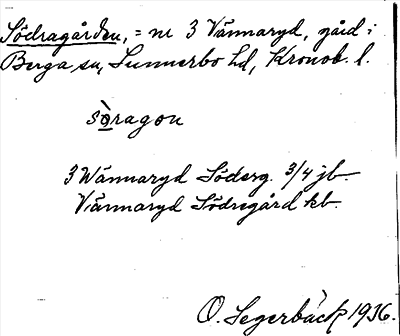 Södragården, = nr 3 Vännaryd, gård i
Berga sn, Sunnerbo hd, Kronob. l.
sò̲ragon
3 Wännaryd Söderg. 3/4 jb.
Vännaryd Södregård kb.
O. Segerbäck 1936.